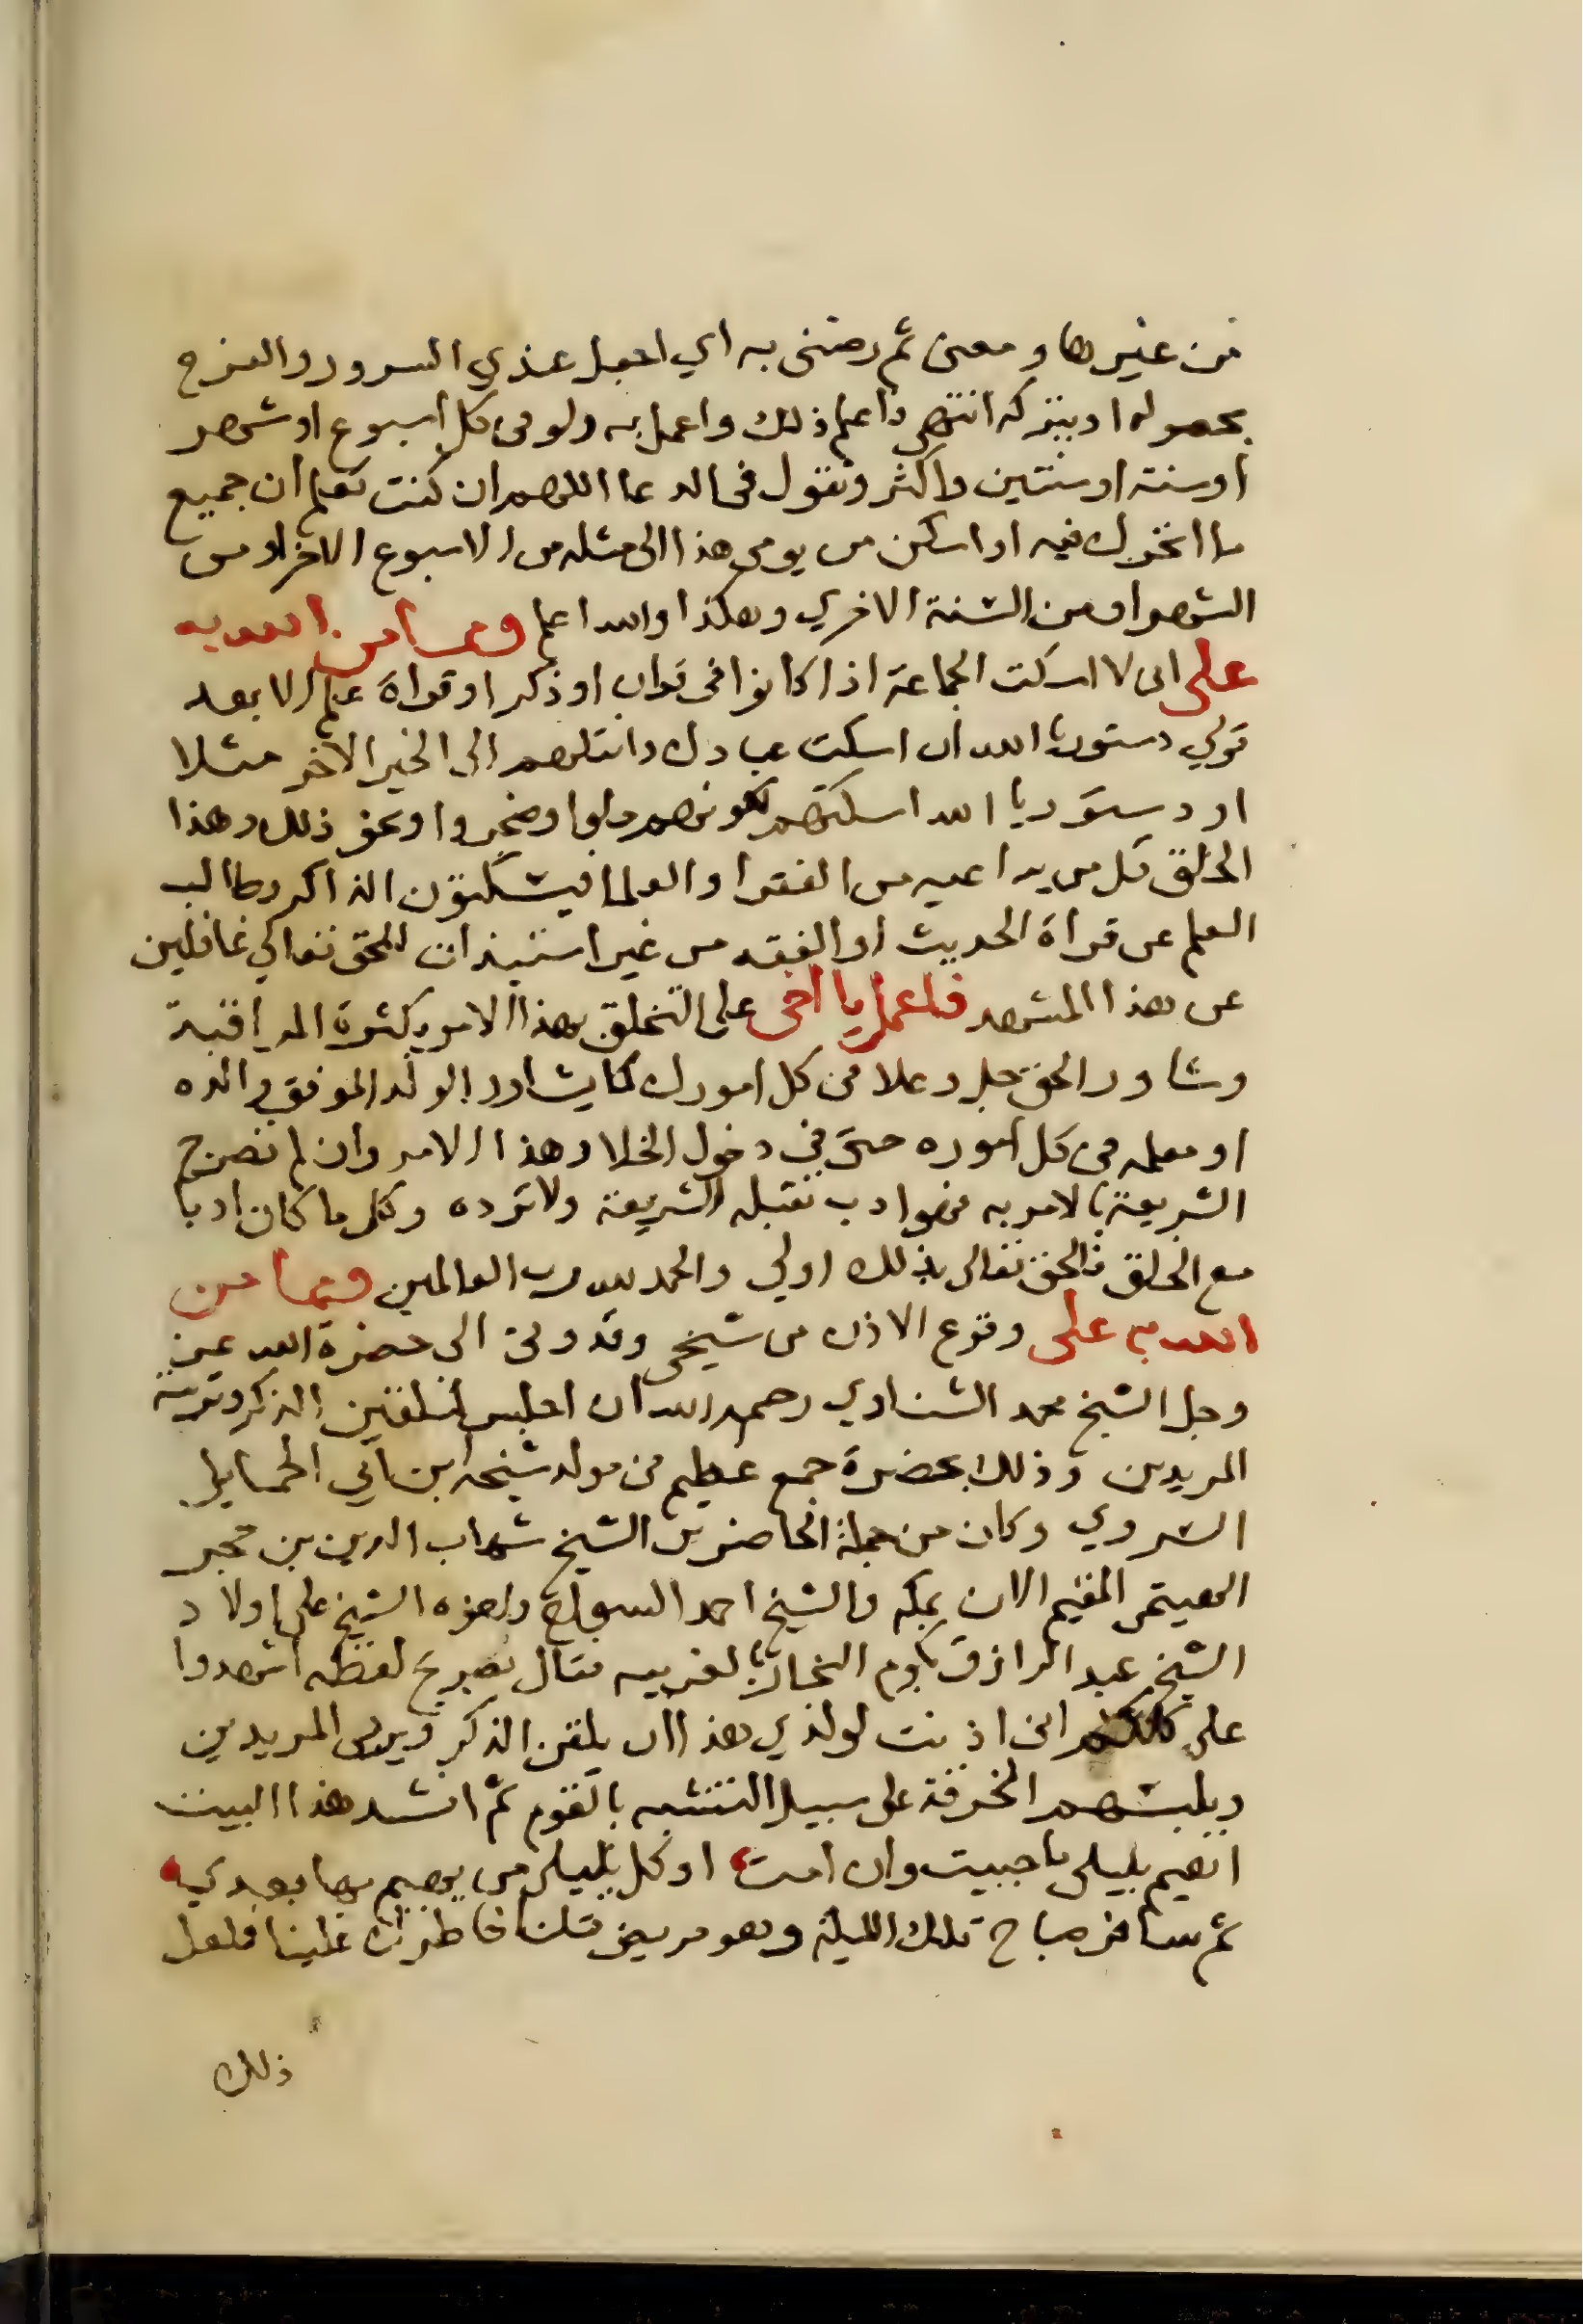 من غيرها ومعنى ثم رضني به اي اجعل عندي السرور والفرح
بحصوله او بتركه انتهى فاعلم ذلك واعمل به ولو في كل اسبوع او شهر
او سنة او سنتين واكثر وتقول في الدعا اللهم ان كنت تعلم ان جميع
ما اتحرك فيه او اسكن من يومي هذا الى مثله من الاسبوع الاخر او من
الشهر او من السنة الاخري وهكذا والله اعلم ومما من الله به
على اني لا اسكت الجماعة اذا كانوا في قران او ذكر او قراة علم الا بعد
قولي دستور يا الله ان اسكت عبادك وانقلهم الى الخير الاخر مثلا
او دستور يا الله اسكتهم لكونهم ملوا وضجروا ونحو ذلك وهذا
الخلق قل من يراعيه من الفقرا والعلما فيسكتون الذاكر وطالب
العلم عن قراة الحديث او الفقه من غير استيذان للحق تعالي غافلين
عن هذا المشهد فاعمل يا اخي على التخلق بهذا الامر بكثرة المراقبة
وشاور الحق جل وعلا في كل امورك كما يشاور الولد الموفق والده
او معلمه في كل اموره حتى في دخول الخلا وهذا الامر وان لم تصرح
الشريعة بالامر به فهو ادب تقبله الشريعة ولا ترده وكل ما كان ادبا
مع الخلق فالحق تعالى بذلك اولي والحمد لله رب العالمين ومما من
الله به على وقوع الاذن من شيخي وقدوتي الى حضرة الله عز
وجل الشيخ محمد الشناوي رحمه الله ان اجلس لتلقين الذكر وتربية
المريدين وذلك بحضرة جمع عظيم في مولد شيخه ابن ابي الحمايل
السروي وكان من جملة الحاضرين الشيخ شهاب الدين بن حجر
الهيتمي المقيم الان بمكه والشيخ احمد السطيح واخوه الشيخ على اولاد
الشيخ عبد الرازق بكوم النجار بالغربيه فقال بصريح لفظه اشهدوا
على كلكم اني اذنت لولدي هذا ان يلقن الذكر ويربي المريدين
ويلبسهم الخرقة على سبيل التشبه بالقوم ثم انشد هذا البيت
اهيم بليلى ما حييت وان امت اوكل بليلى من يهيم بها بعدي
ثم سافر صباح تلك الليلة وهو مريض قلنا خاطرك علينا فلعل
ذلك